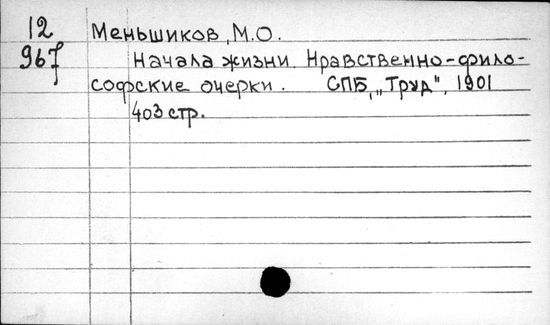 12 Меньшиков, М.О.
967 Начала жизни. Нравственно-фило-
софские очерки. СПБ, „Труд", 1901
403 стр.